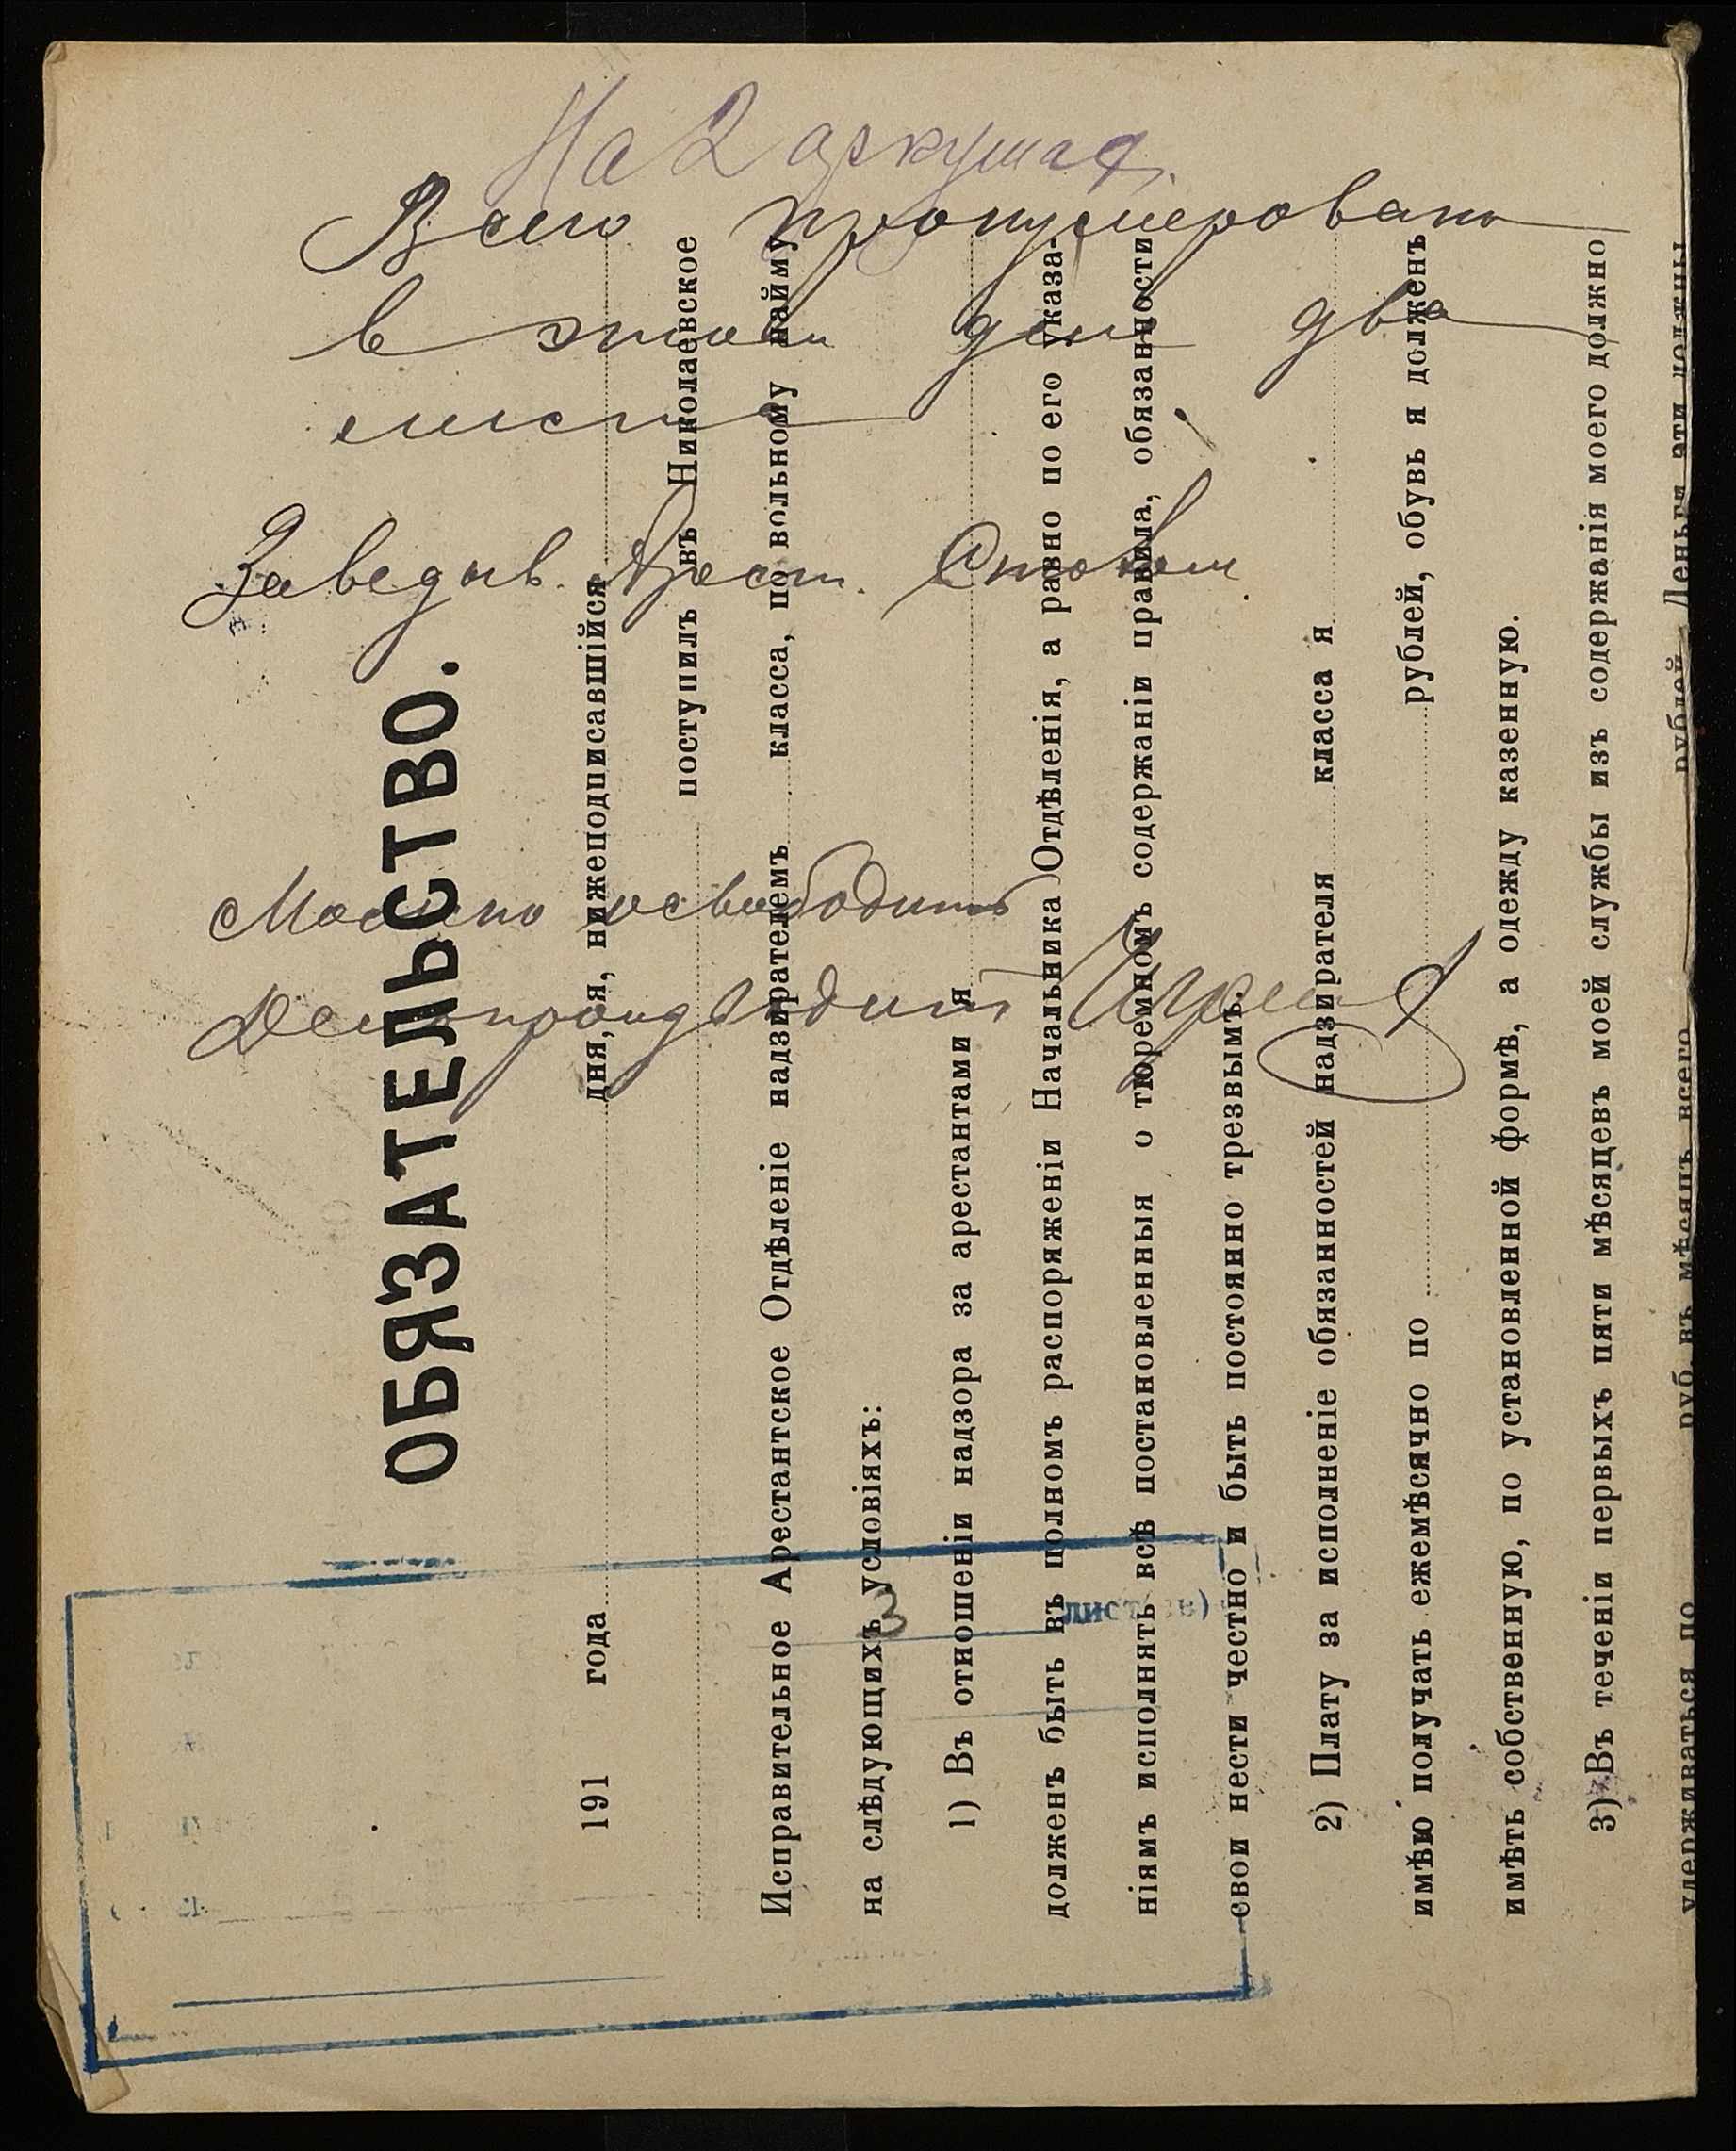 На 2 аркушах.
Всего пронумеровано
в этом деле два
листа
Заведыв. Арест. Столом
Можно освободить
ОБЯЗАТЕЛЬСТВО.
191 года дня, я, нижеподписавшійся
поступилъ въ Николаевское
Исправительное Арестантское Отдѣленіе надзирателемъ класса, по вольному найму
на слѣдующихъ условіяхъ:
1) Въ отношеніи надзора за арестантами я
долженъ быть въ полномъ распоряженіи Начальника Отдѣленія, а равно по его указа-
ніямъ исполнять всѣ постановленныя о тюремномъ содержаніи правила, обязанности
свои нести честно и быть постоянно трезвымъ.
2) Плату за исполненіе обязанностей надзирателя класса я
имѣю получать ежемѣсячно по рублей, обувь я долженъ
имѣть собственную, по установленной формѣ, а одежду казенную.
3) Въ теченіи первыхъ пяти мѣсяцевъ моей службы изъ содержанія моего должно
удерживаться по руб. въ мѣсяцъ всего рублей. Деньги эти должны
3 лист(ів)